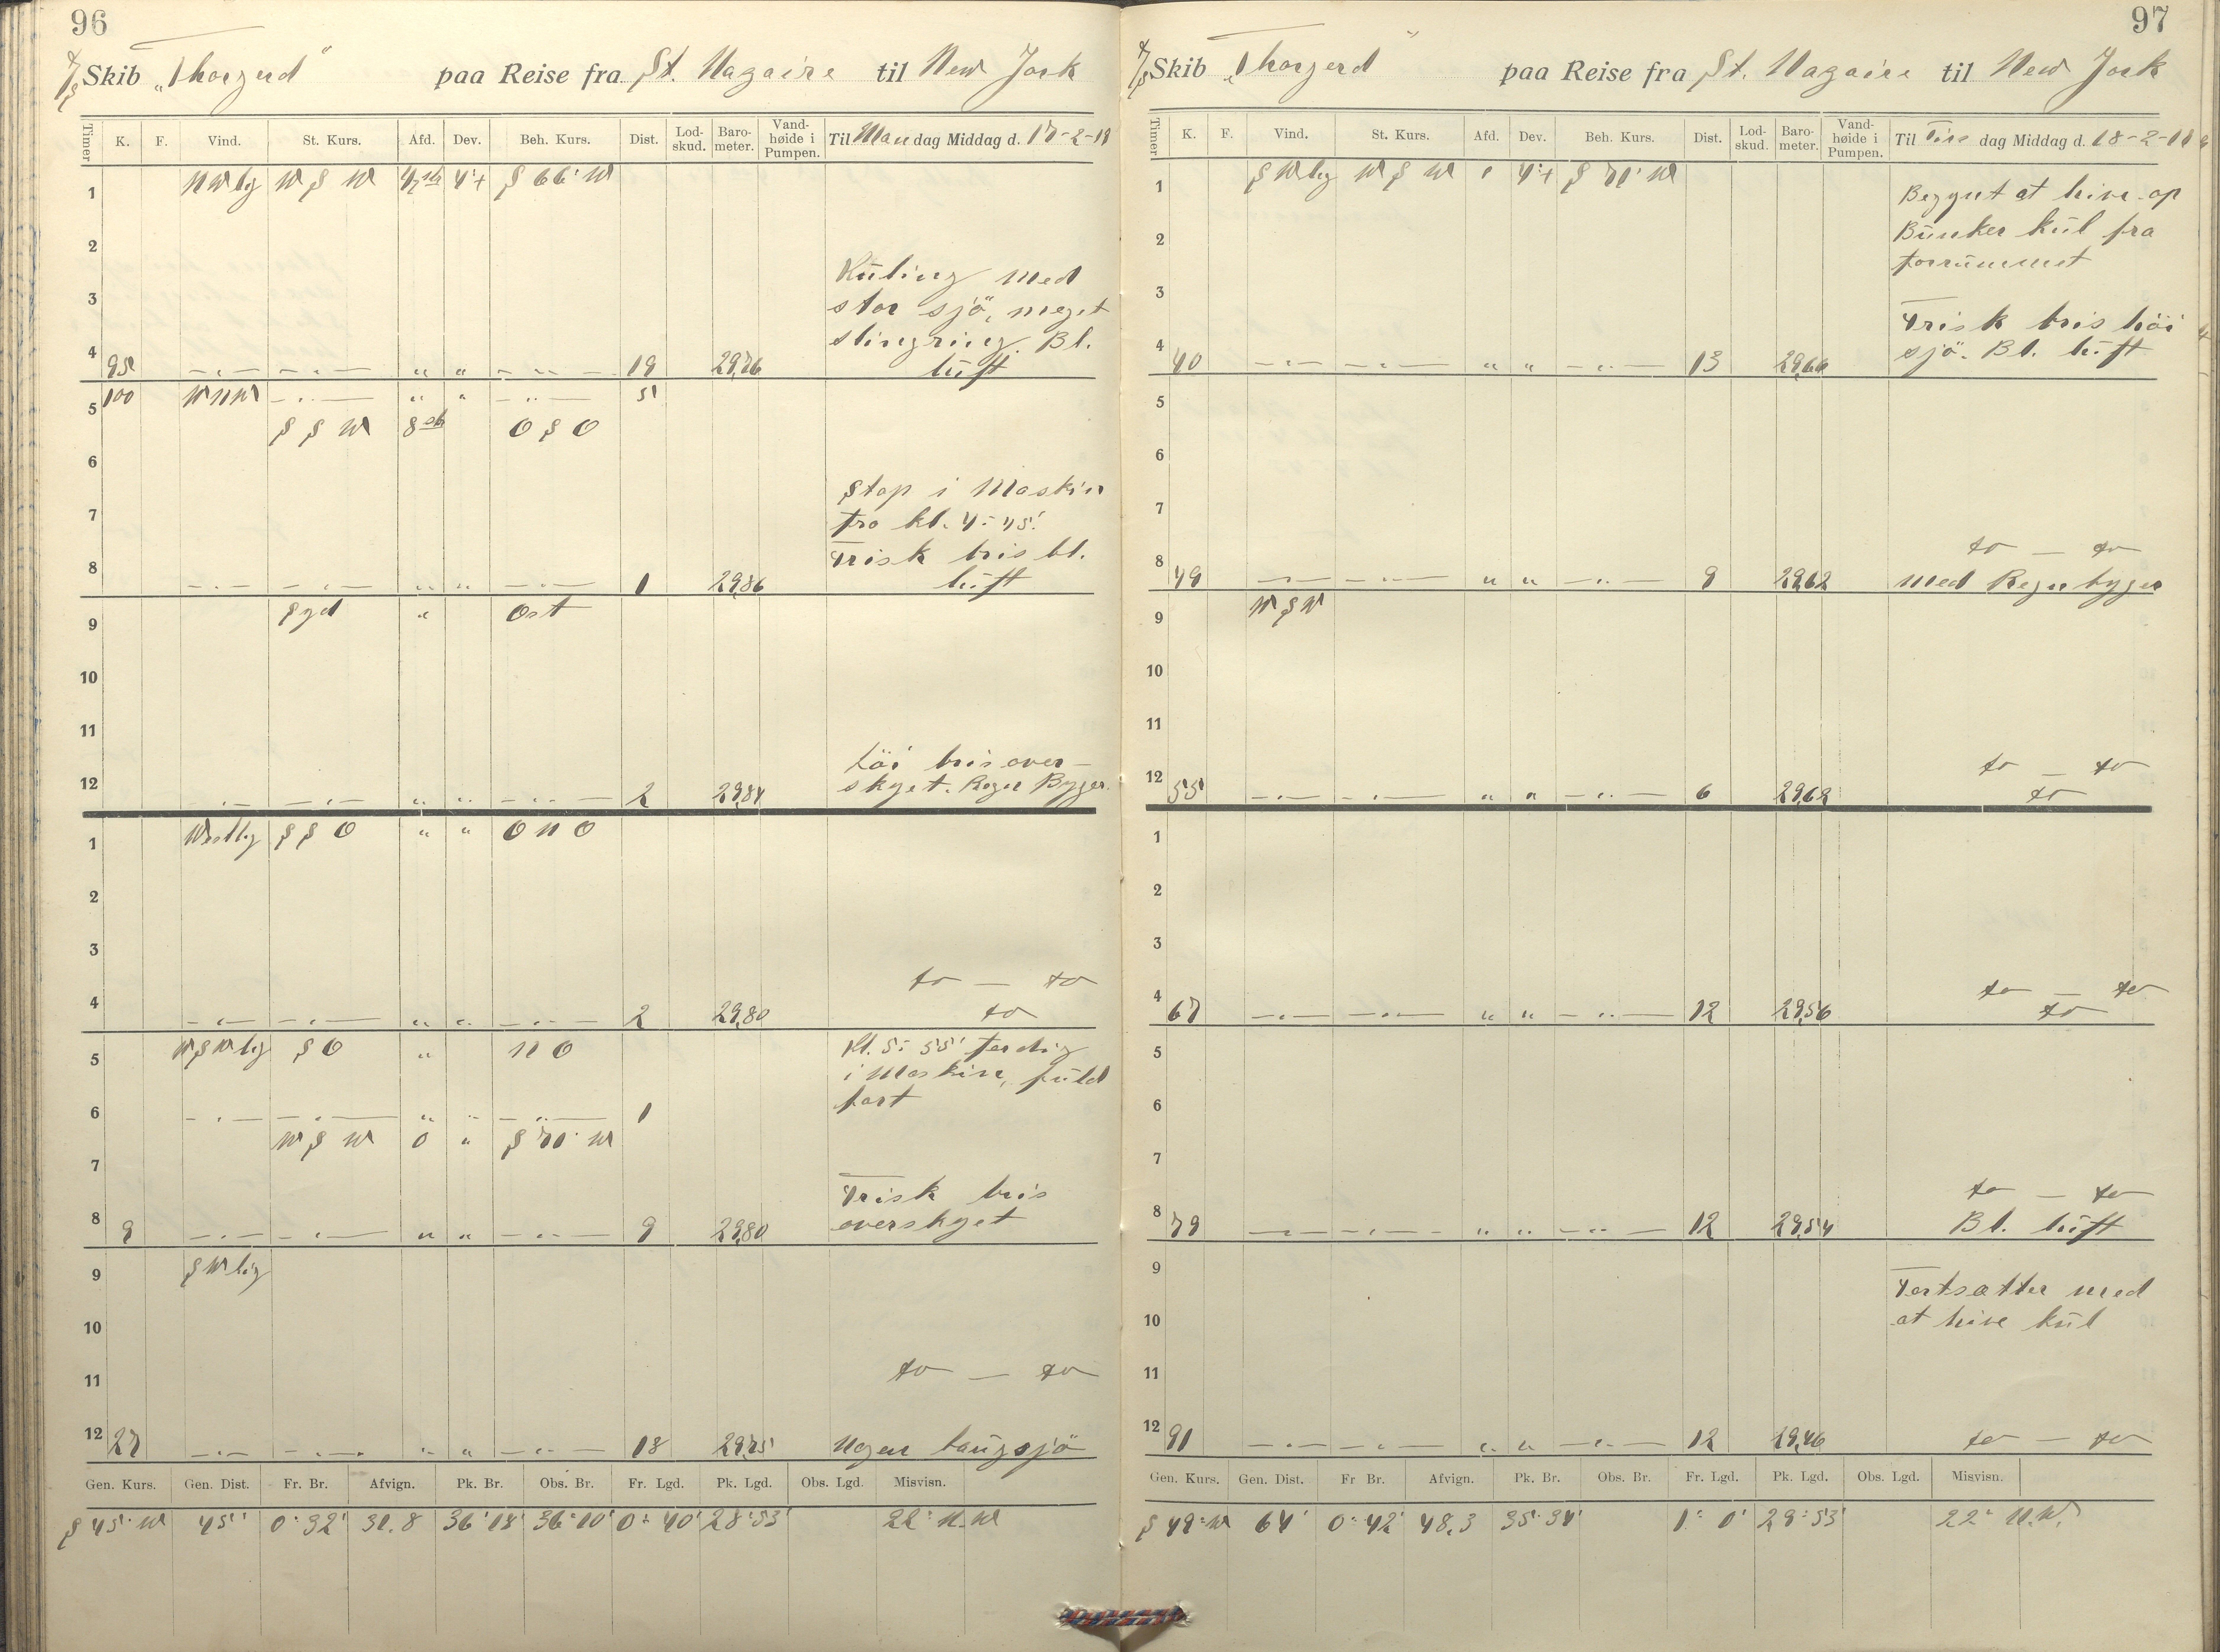 96
D/S Skib „Thorgerd" paa Reise fra St. Nazaire til New York
Timer K. F. Vind. St. Kurs. Afd. Dev. Beh. Kurs. Dist. Lod-skud. Baro-meter. Vand-høide i Pumpen. Til Mandag Middag d. 17-2-19
1 NWlig W S W 4° + S 66° W
2
Kuling med
3
stor sjö, meget
slingring. Bl.
4 95 19 29,76 luft
5 100 WNW 5
S S W 8 O S O
6
Stop i Maskin
7 fra kl. 4:45'.
Frisk bris bl.
8 1 29,86 luft
9 Syd Ost
10
11
Löi bris over-
12 2 29,84 skyet. Regn Byger.
1 Westlig S S O O N O
2
3
to — to
4 2 29,80 to
5 WSWlig S O N O Kl. 5:55' ferdig
i Maskine, fuld
6 1 fart
W S W 0 S 70° W
7
Frisk bris
8 9 9 29,80 overskyet
9 SWlig
10
11 to — to
12 27 18 29,75 Noen baugsjö
Gen. Kurs. Gen. Dist. Fr. Br. Afvign. Pk. Br. Obs. Br. Fr. Lgd. Pk. Lgd. Obs. Lgd. Misvisn.
S 45° W 45' 0° 32' 31.8 36° 18' 36° 10' 0° 40' 28° 53' 22° N.W
97
D/S Skib „Thorgerd" paa Reise fra St. Nazaire til New York
Timer K. F. Vind. St. Kurs. Afd. Dev. Beh. Kurs. Dist. Lod-skud. Baro-meter. Vand-høide i Pumpen. Til Tirsdag Middag d. 18-2-19
1 SWlig W S W 4° + S 70° W Begynt at hive op
2 Bunker kul fra
forrummet
3
Frisk bris höi
4 40 13 29,66 sjö. Bl. luft
5
6
7
8 to — to
49 9 29,62 med Regn byger
9 W S W
10
11
to — to
12 55 6 29,62 to
1
2
3
to — to
4 67 12 29,56 to
5
6
7
to — to
8 79 12 29,54 Bl. luft
9 Fortsætter med
10 at hive kul
11
12 91 12 29,46 to — to
Gen. Kurs. Gen. Dist. Fr Br. Afvign. Pk. Br. Obs. Br. Fr. Lgd. Pk. Lgd. Obs. Lgd. Misvisn.
S 49° W 64' 0° 42' 48,3 35° 34' 1° 0' 29° 53' 22° N.W.